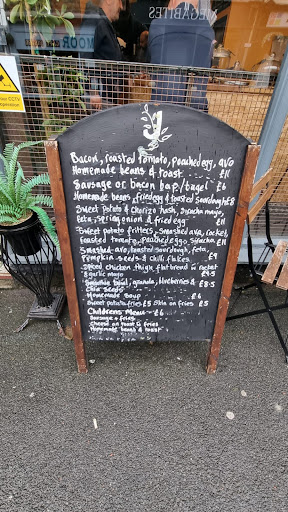 MEGABITES
NOOR
CCTV
Bacon, roasted tomato, poached egg, avo
Homemade beans & toast £11
Sausage or bacon bap/bagel £6
Homemade beans, fried egg & toasted sourdough £8
Sweet potato & chorizo hash, siracha mayo,
feta, spring onion & fried egg £11
Sweet potato fritters, smashed avo, rocket,
roasted tomato, poached egg, siracha £11
Smashed avo, toasted sourdough, feta,
Pumpkin seeds & chilli flakes £9
Spiced chicken thigh flatbread w rocket
& garlic mayo £9
Smoothie bowl, granola, blueberries & £8.5
Chia seeds
Homemade soup £6
Sweet potato fries £5 Skin on fries £5
Childrens Menu - £6
Sausage + fries
Cheese on toast & fries
Homemade beans & toast